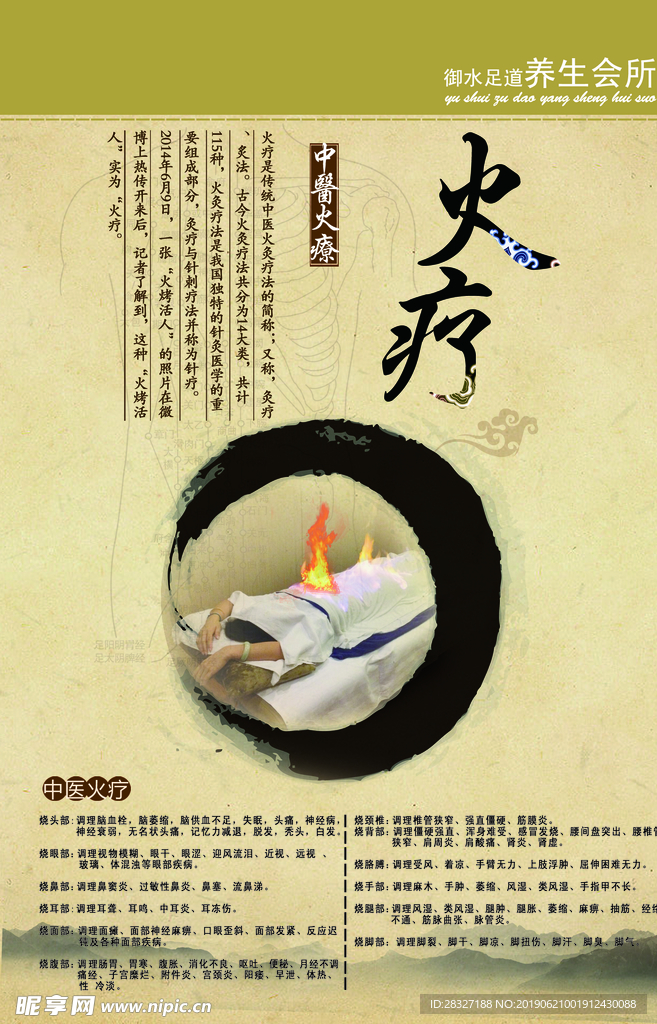 御水足道养生会所
yu shui zu dao yang sheng hui suo
火疗
中醫火療
火疗是传统中医火灸疗法的简称；又称，灸疗
、灸法。古今火灸疗法共分为14大类，共计
115种，火灸疗法是我国独特的针灸医学的重
要组成部分，灸疗与针刺疗法并称为针疗。
2014年6月9日，一张“火烤活人”的照片在微
博上热传开来后，记者了解到，这种“火烤活
人”实为“火疗。
足阳明胃经
足太阴脾经
中医火疗
烧头部：调理脑血栓，脑萎缩，脑供血不足，失眠，头痛，神经病，
神经衰弱，无名状头痛，记忆力减退，脱发，秃头，白发。
烧眼部：调理视物模糊、眼干、眼涩、迎风流泪、近视、远视 、
玻璃、体混浊等眼部疾病。
烧鼻部：调理鼻窦炎、过敏性鼻炎、鼻塞、流鼻涕。
烧耳部：调理耳聋、耳鸣、中耳炎、耳冻伤。
烧面部：调理面瘫、面部神经麻痹、口眼歪斜、面部发紧、反应迟
钝及各种面部疾病。
烧腹部：调理肠胃、胃寒、腹胀、消化不良、呕吐、便秘、月经不调
痛经、子宫糜烂、附件炎、宫颈炎、阳痿、早泄、体热、
性 冷淡。
烧颈椎：调理椎管狭窄、强直僵硬、筋膜炎。
烧背部：调理僵硬强直、浑身难受、感冒发烧、腰间盘突出、腰椎管
狭窄、肩周炎、肩酸痛、肾炎、肾虚。
烧胳膊：调理受风、着凉、手臂无力、上肢浮肿、屈伸困难无力。
烧手部：调理麻木、手肿、萎缩、风湿、类风湿、手指甲不长。
烧腿部：调理风湿、类风湿、腿肿、腿胀、萎缩、麻痹、抽筋、经络
不通、筋脉曲张、脉管炎。
烧脚部：调理脚裂、脚干、脚凉、脚扭伤、脚汗、脚臭、脚气
昵享网 www.nipic.cn
ID:28327188 NO:20190621001912430088